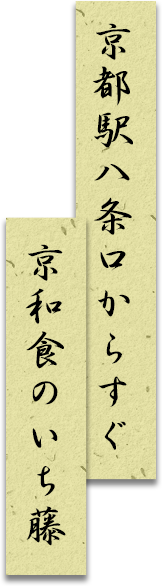 京都駅八条口からすぐ
京和食のいち藤